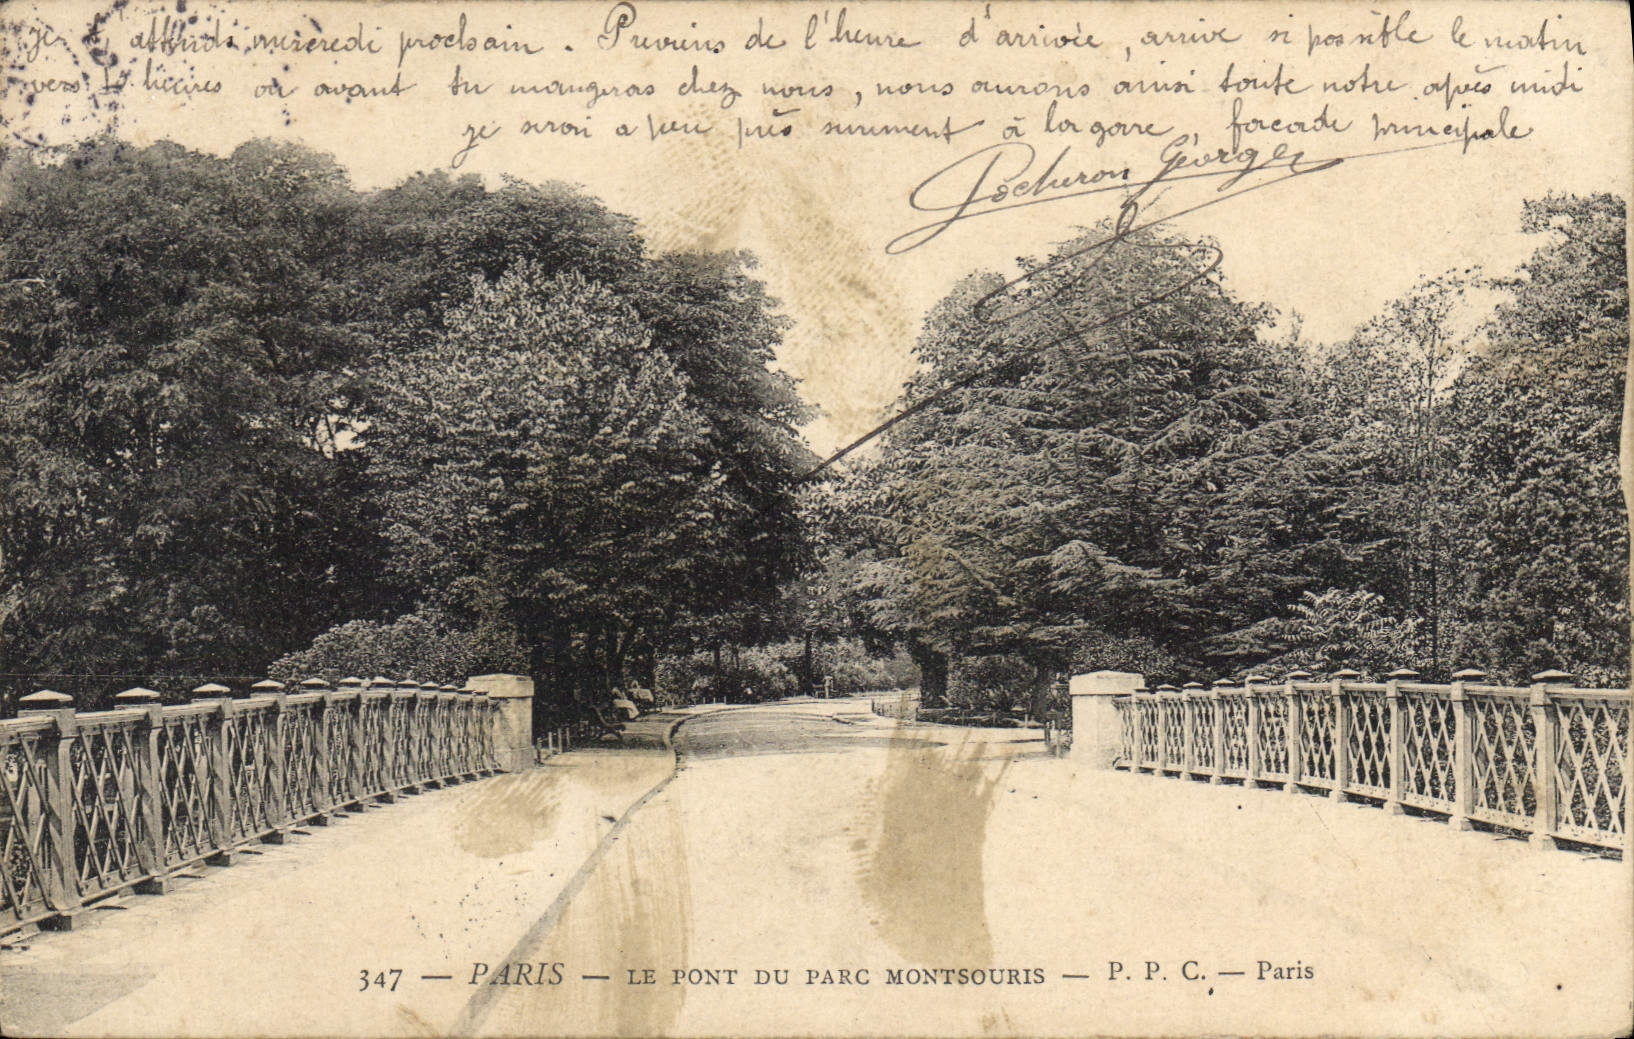 je t'attends mercredi prochain. Previens de l'heure d'arrivée, arrive si possible le matin
vers heures ou avant tu mangeras chez nous, nous aurons ainsi toute notre après midi
je serai a peu près surement à la gare, facade principale
Georges
347 — PARIS — LE PONT DU PARC MONTSOURIS — P. P. C. — Paris